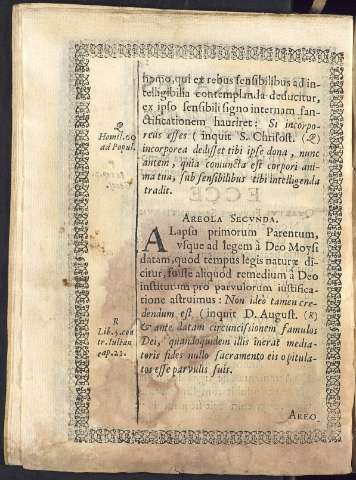 homo, qui ex rebus sensibilibus ad in-
telligibilia contemplanda deducitur,
ex ipso sensibili signo internam san-
ctificationem hauriret: Si incorpo-
Q
Homil. 60
ad Popul.
reus esses ( inquit S. Chrisost. (Q)
incorporea dedisset tibi ipse dona, nunc
autem, quia coniuncta est corpori ani-
ma tua, sub sensibilibus tibi intelligenda
tradit.
AREOLA SECVNDA.
A Lapsu primorum Parentum,
vsque ad legem à Deo Moysi
datam, quod tempus legis naturæ di-
citur, fuisse aliquod remedium à Deo
institutum pro parvulorum iustifica-
tione astruimus: Non ideò tamen cre-
dendum est ( inquit D. August. (R)
R
Lib. 5. con-
tr. Iulian.
cap. 22.
& ante datam circuncissionem famulos
Dei, quandoquidem illis inerat media-
toris fides nullo sacramento eis opitula-
tos esse parvulis suis.
AREO